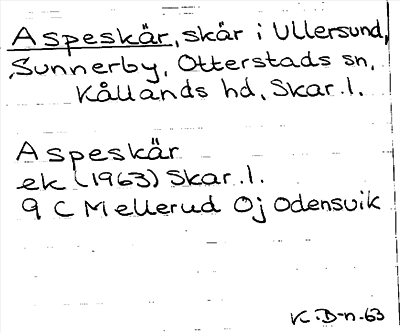 Aspeskär, skär i Ullersund,
Sunnerby, Otterstads sn,
Kållands hd, Skar. l.
Aspeskär
ek (1963) Skar. l.
9 C Mellerud Öj Odensvik
K. D-n-63